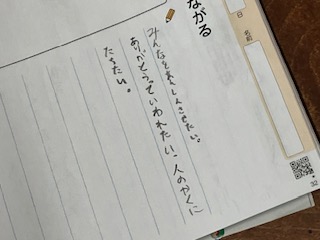 ながる
みんなを楽しくさせたい。
ありがとうっていわれたい。人のやくに
たちたい。
日
名前
32